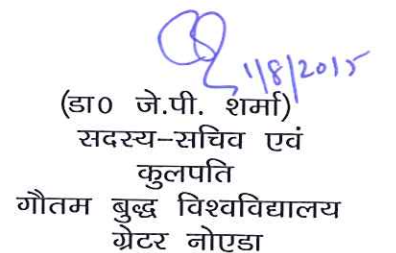 1/8/2015
(डा0 जे.पी. शर्मा)
सदस्य-सचिव एवं
कुलपति
गौतम बुद्ध विश्वविद्यालय
ग्रेटर नोएडा